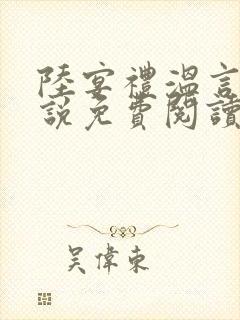 陸宴禮溫言
說免費閱讀
吳偉東